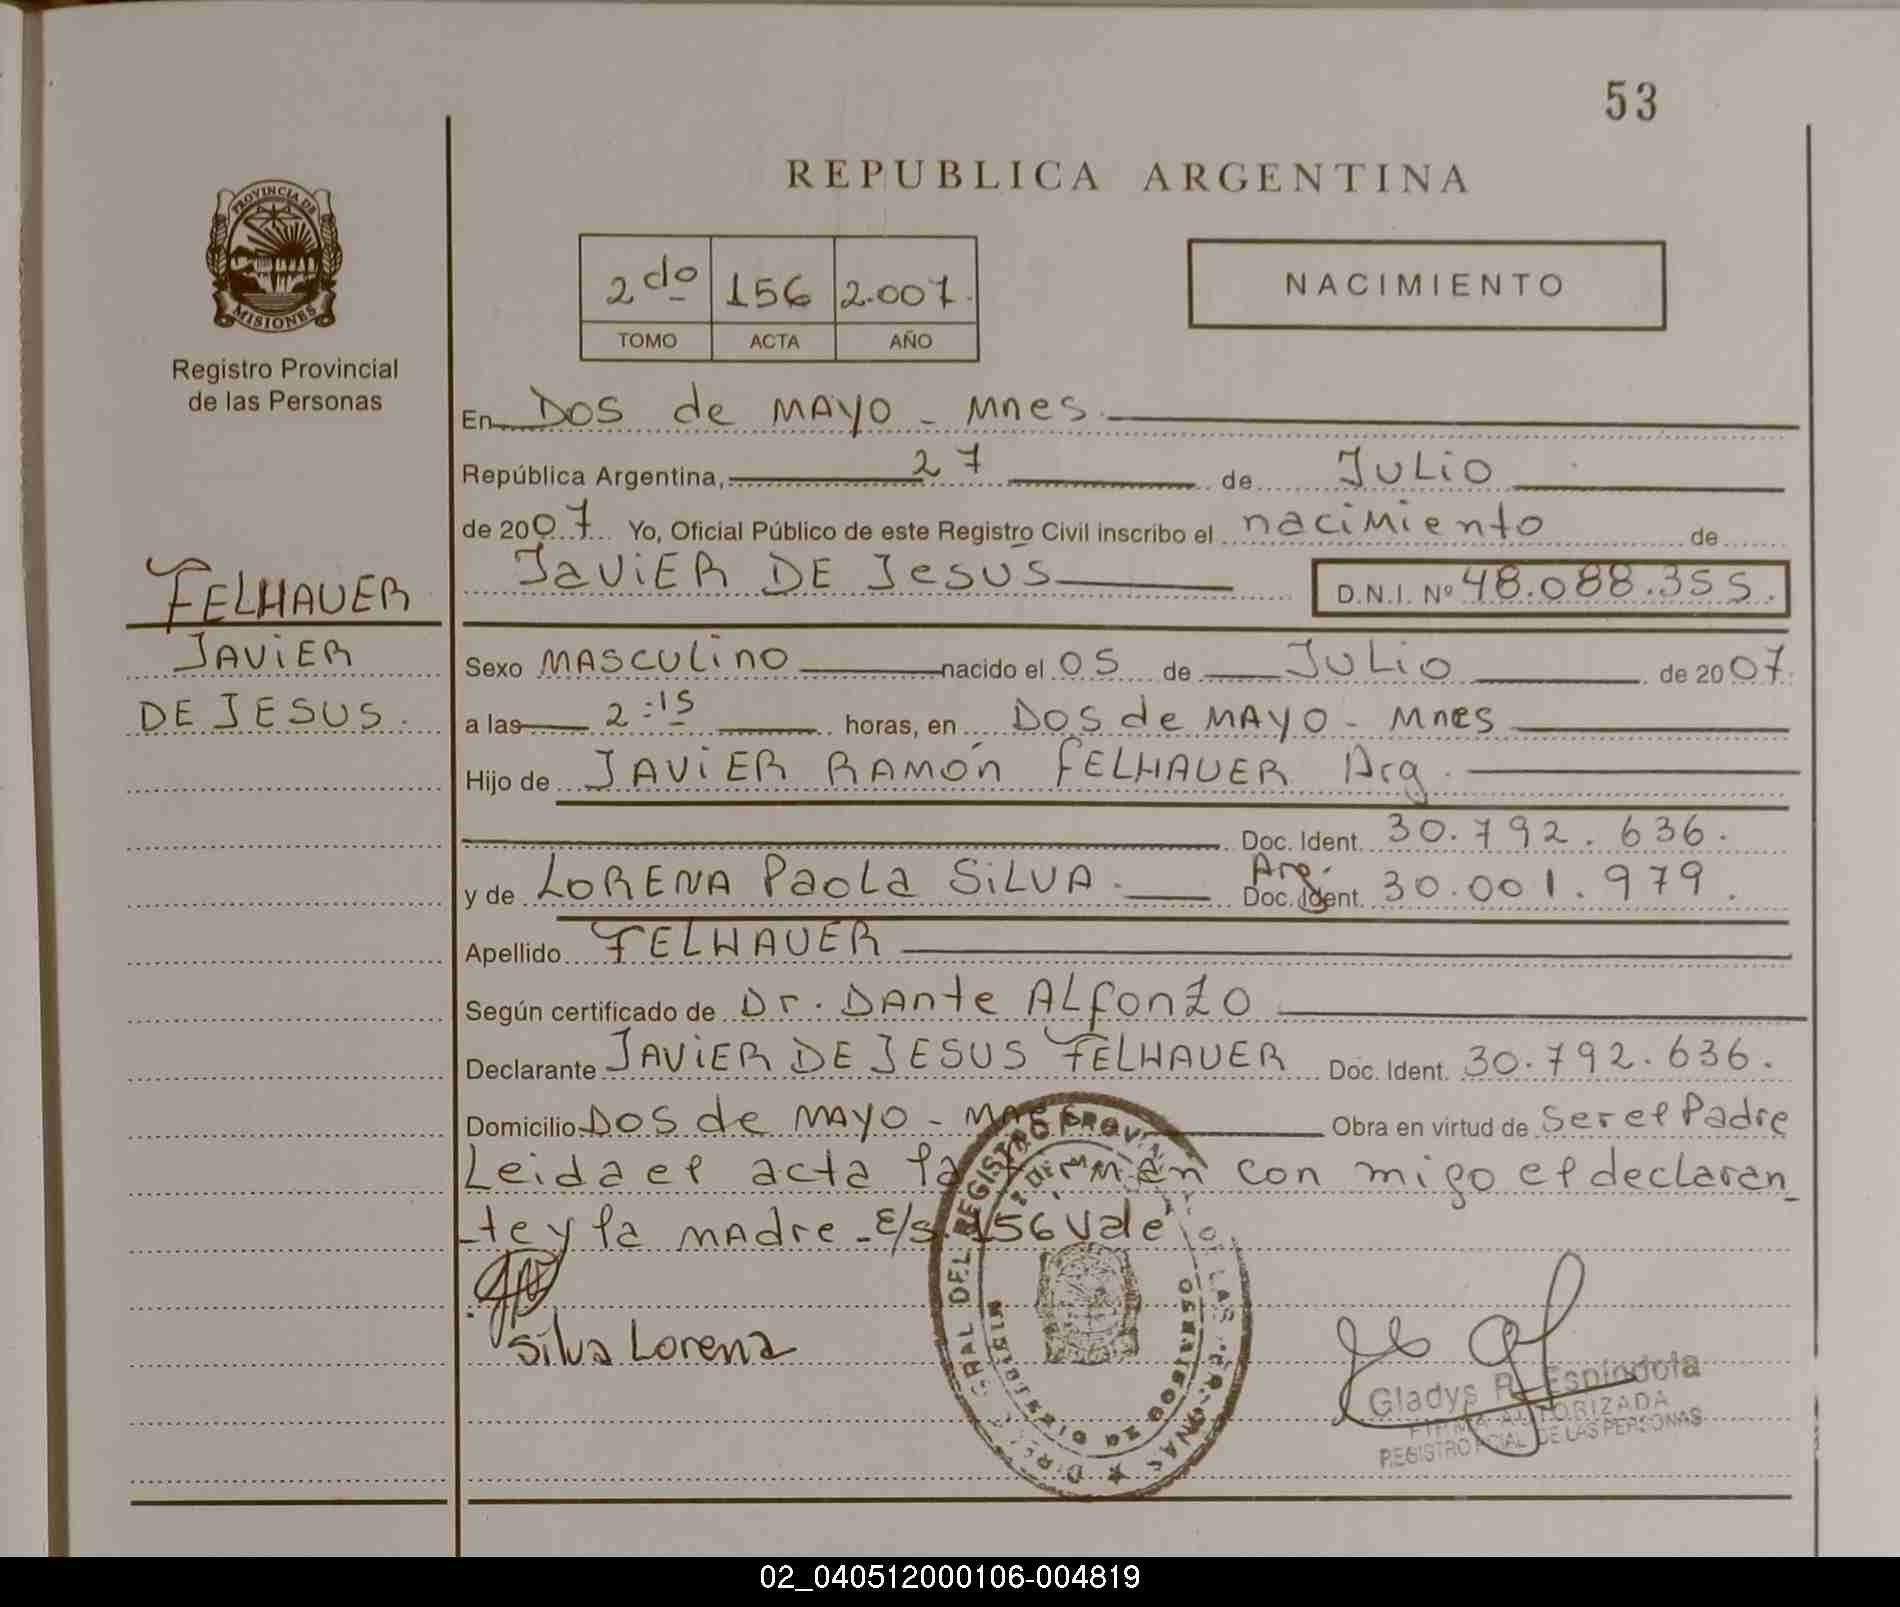 53
REPUBLICA ARGENTINA
PROVINCIA DE
MISIONES
Registro Provincial
de las Personas
2do 156 2.007.
TOMO ACTA AÑO
NACIMIENTO
En Dos de MAYO - Mnes.
República Argentina, 27 de JULIO
de 2007. Yo, Oficial Público de este Registro Civil inscribo el nacimiento de
JAVIER DE JESUS D.N.I. Nº 48.088.355.
FELHAUER
JAVIER
DE JESUS.
Sexo MASCULINO nacido el 05 de JULIO de 2007.
a las 2:15 horas, en DOS de MAYO - Mnes
Hijo de JAVIER RAMÓN FELHAUER Arg.
Doc. Ident. 30.792.636.
y de LORENA PAOLA SILVA. Arg. Doc. Ident. 30.001.979.
Apellido FELHAUER
Según certificado de Dr. DAnte ALfonzo
Declarante JAVIER DE JESUS FELHAUER Doc. Ident. 30.792.636.
Domicilio DOS de MAYO - Obra en virtud de ser el Padre
Leida el acta la firman con migo el declaran_
_te y la madre - E/s. 156 Vale
Silva Lorena
REGISTRO PROVIN
DE LAS
Gladys R. Espíndola
FIRMA AUTORIZADA
REGISTRO PCIAL DE LAS PERSONAS
02_040512000106-004819